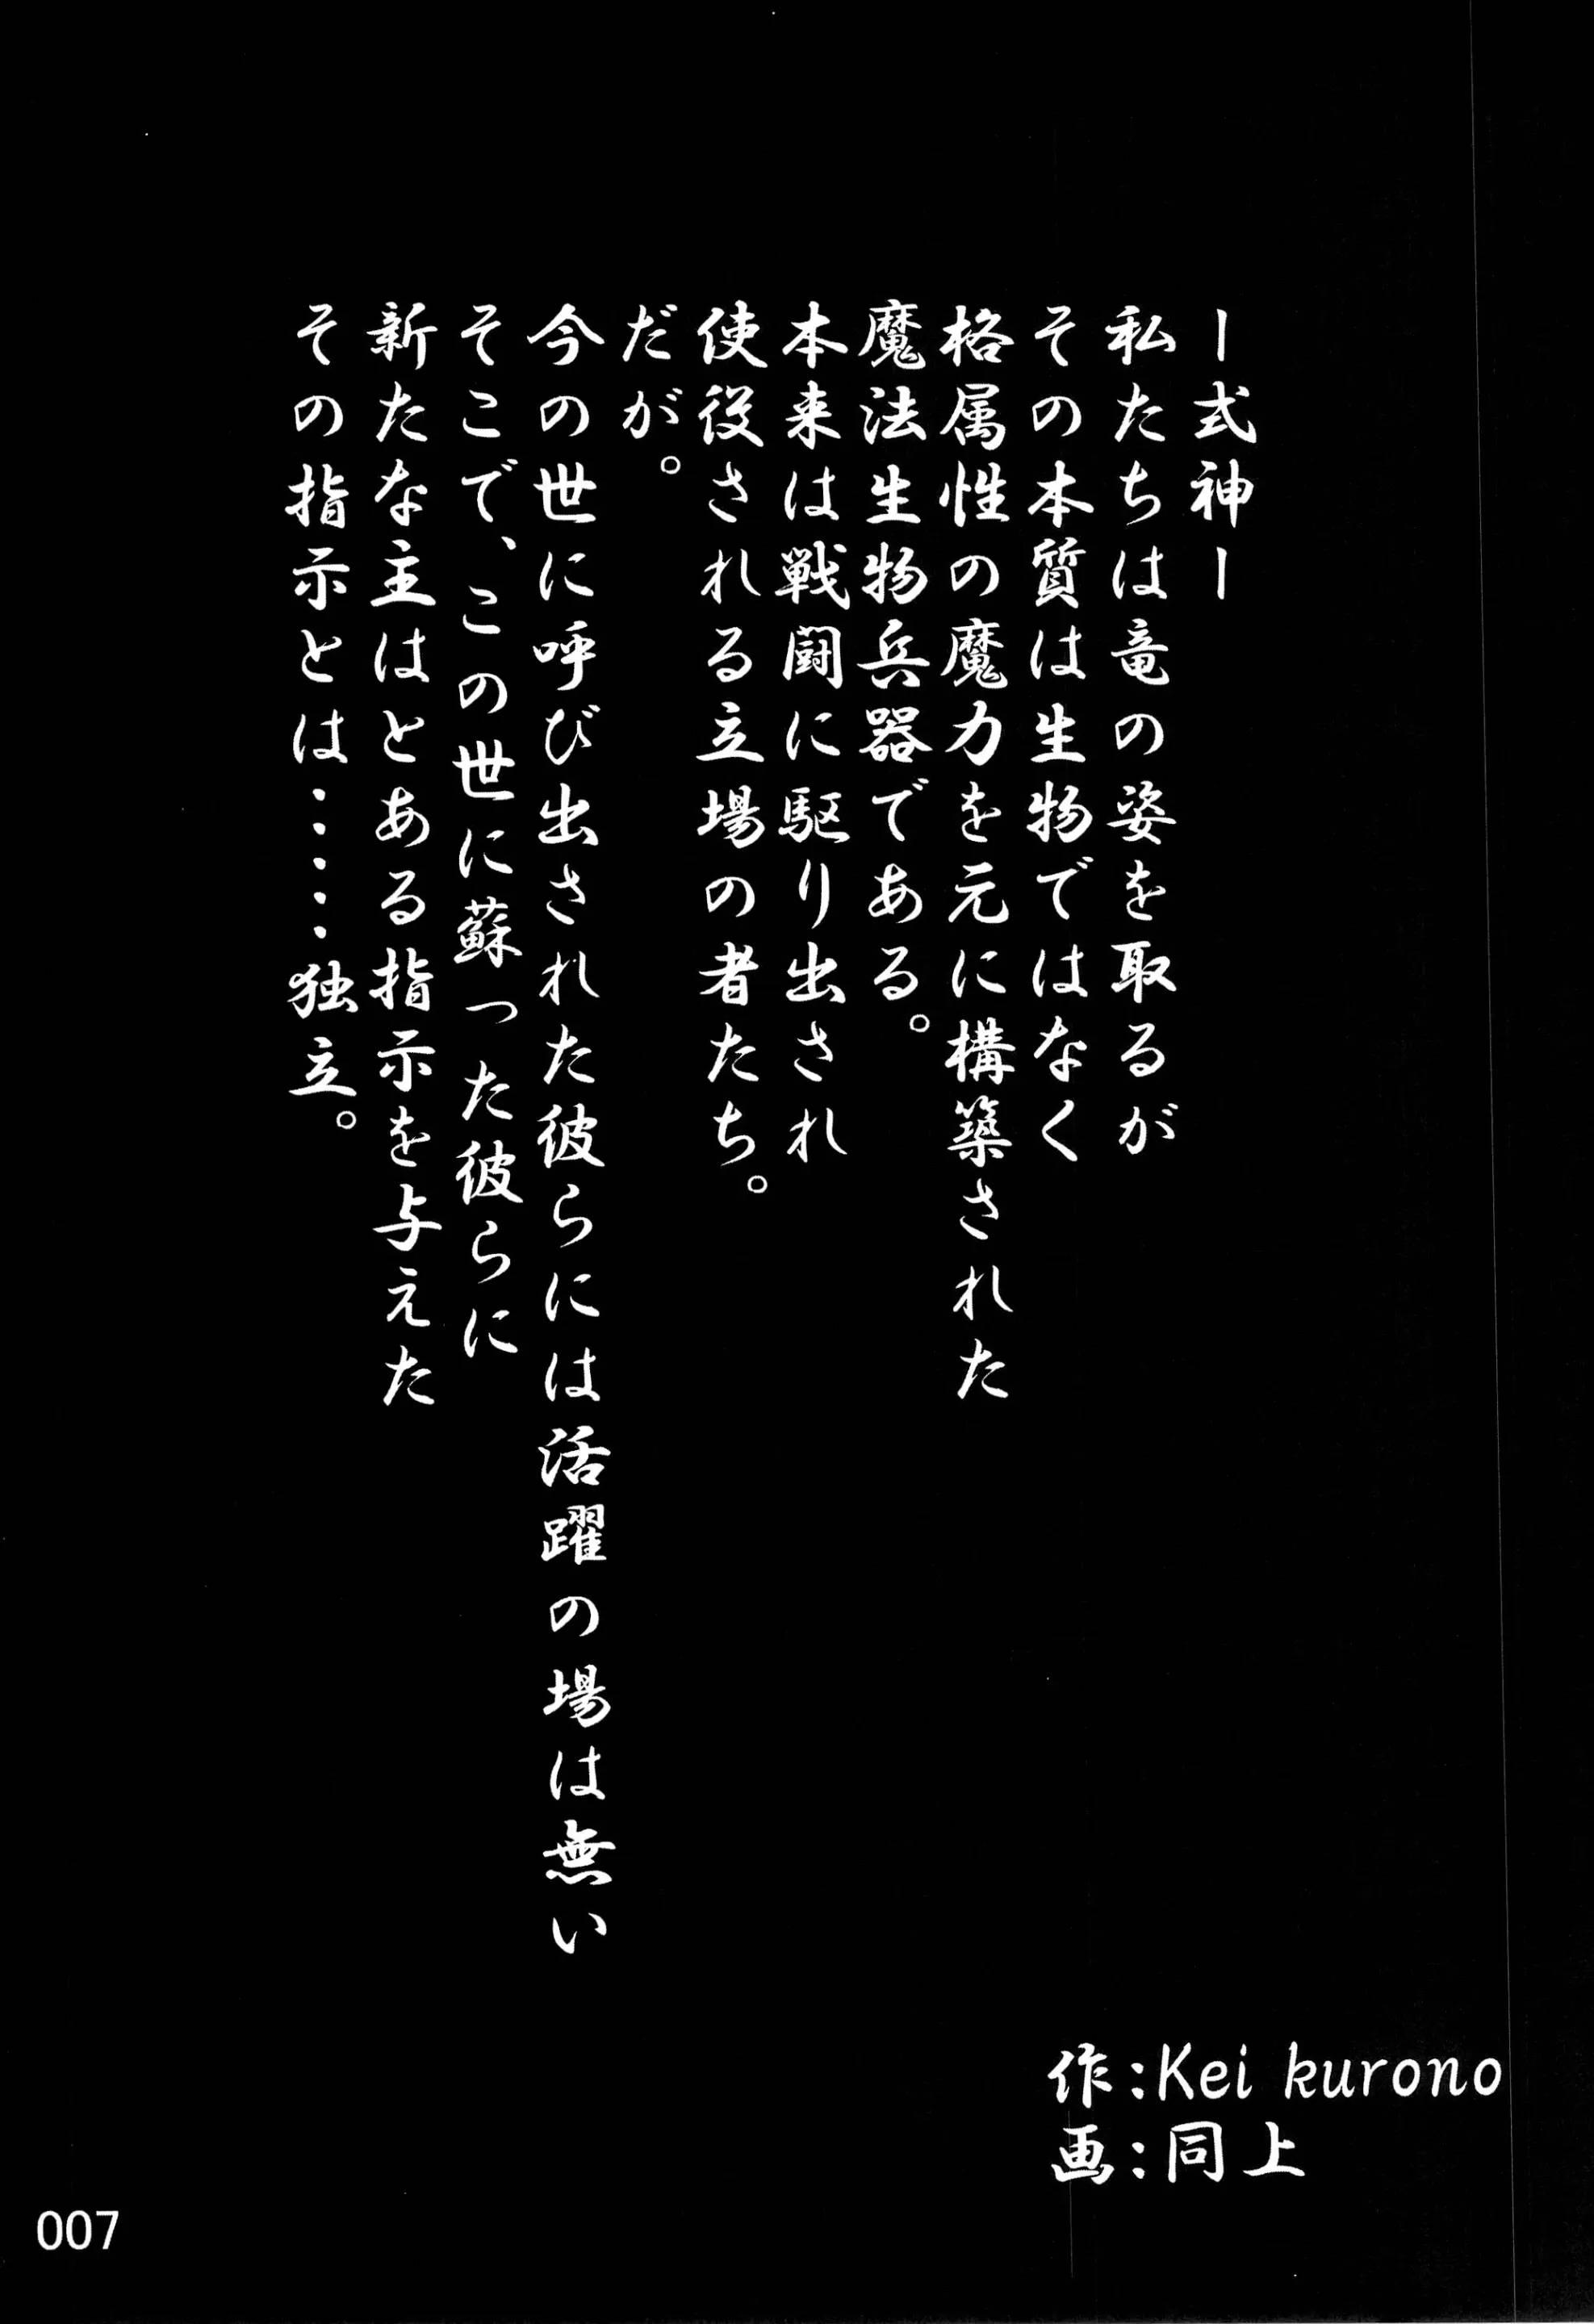 ー式神ー
私たちは竜の姿を取るが
その本質は生物ではなく
格属性の魔力を元に構築された
魔法生物兵器である。
本来は戦闘に駆り出され
使役される立場の者たち。
だが。
今の世に呼び出された彼らには活躍の場は無い
そこで、この世に蘇った彼らに
新たな主はとある指示を与えた
その指示とは……独立。
作:Kei kurono
画:同上
007